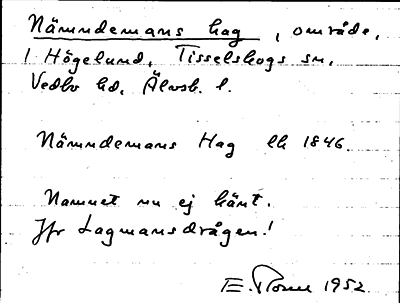 Nämndemans hag, område,
1 Högelund, Tisselskogs sn,
Vedbo hd, Älvsb. l.
Nämndemans Hag lk 1846.
Namnet nu ej känt.
Jfr Lagmansdrågen!
E. 1952